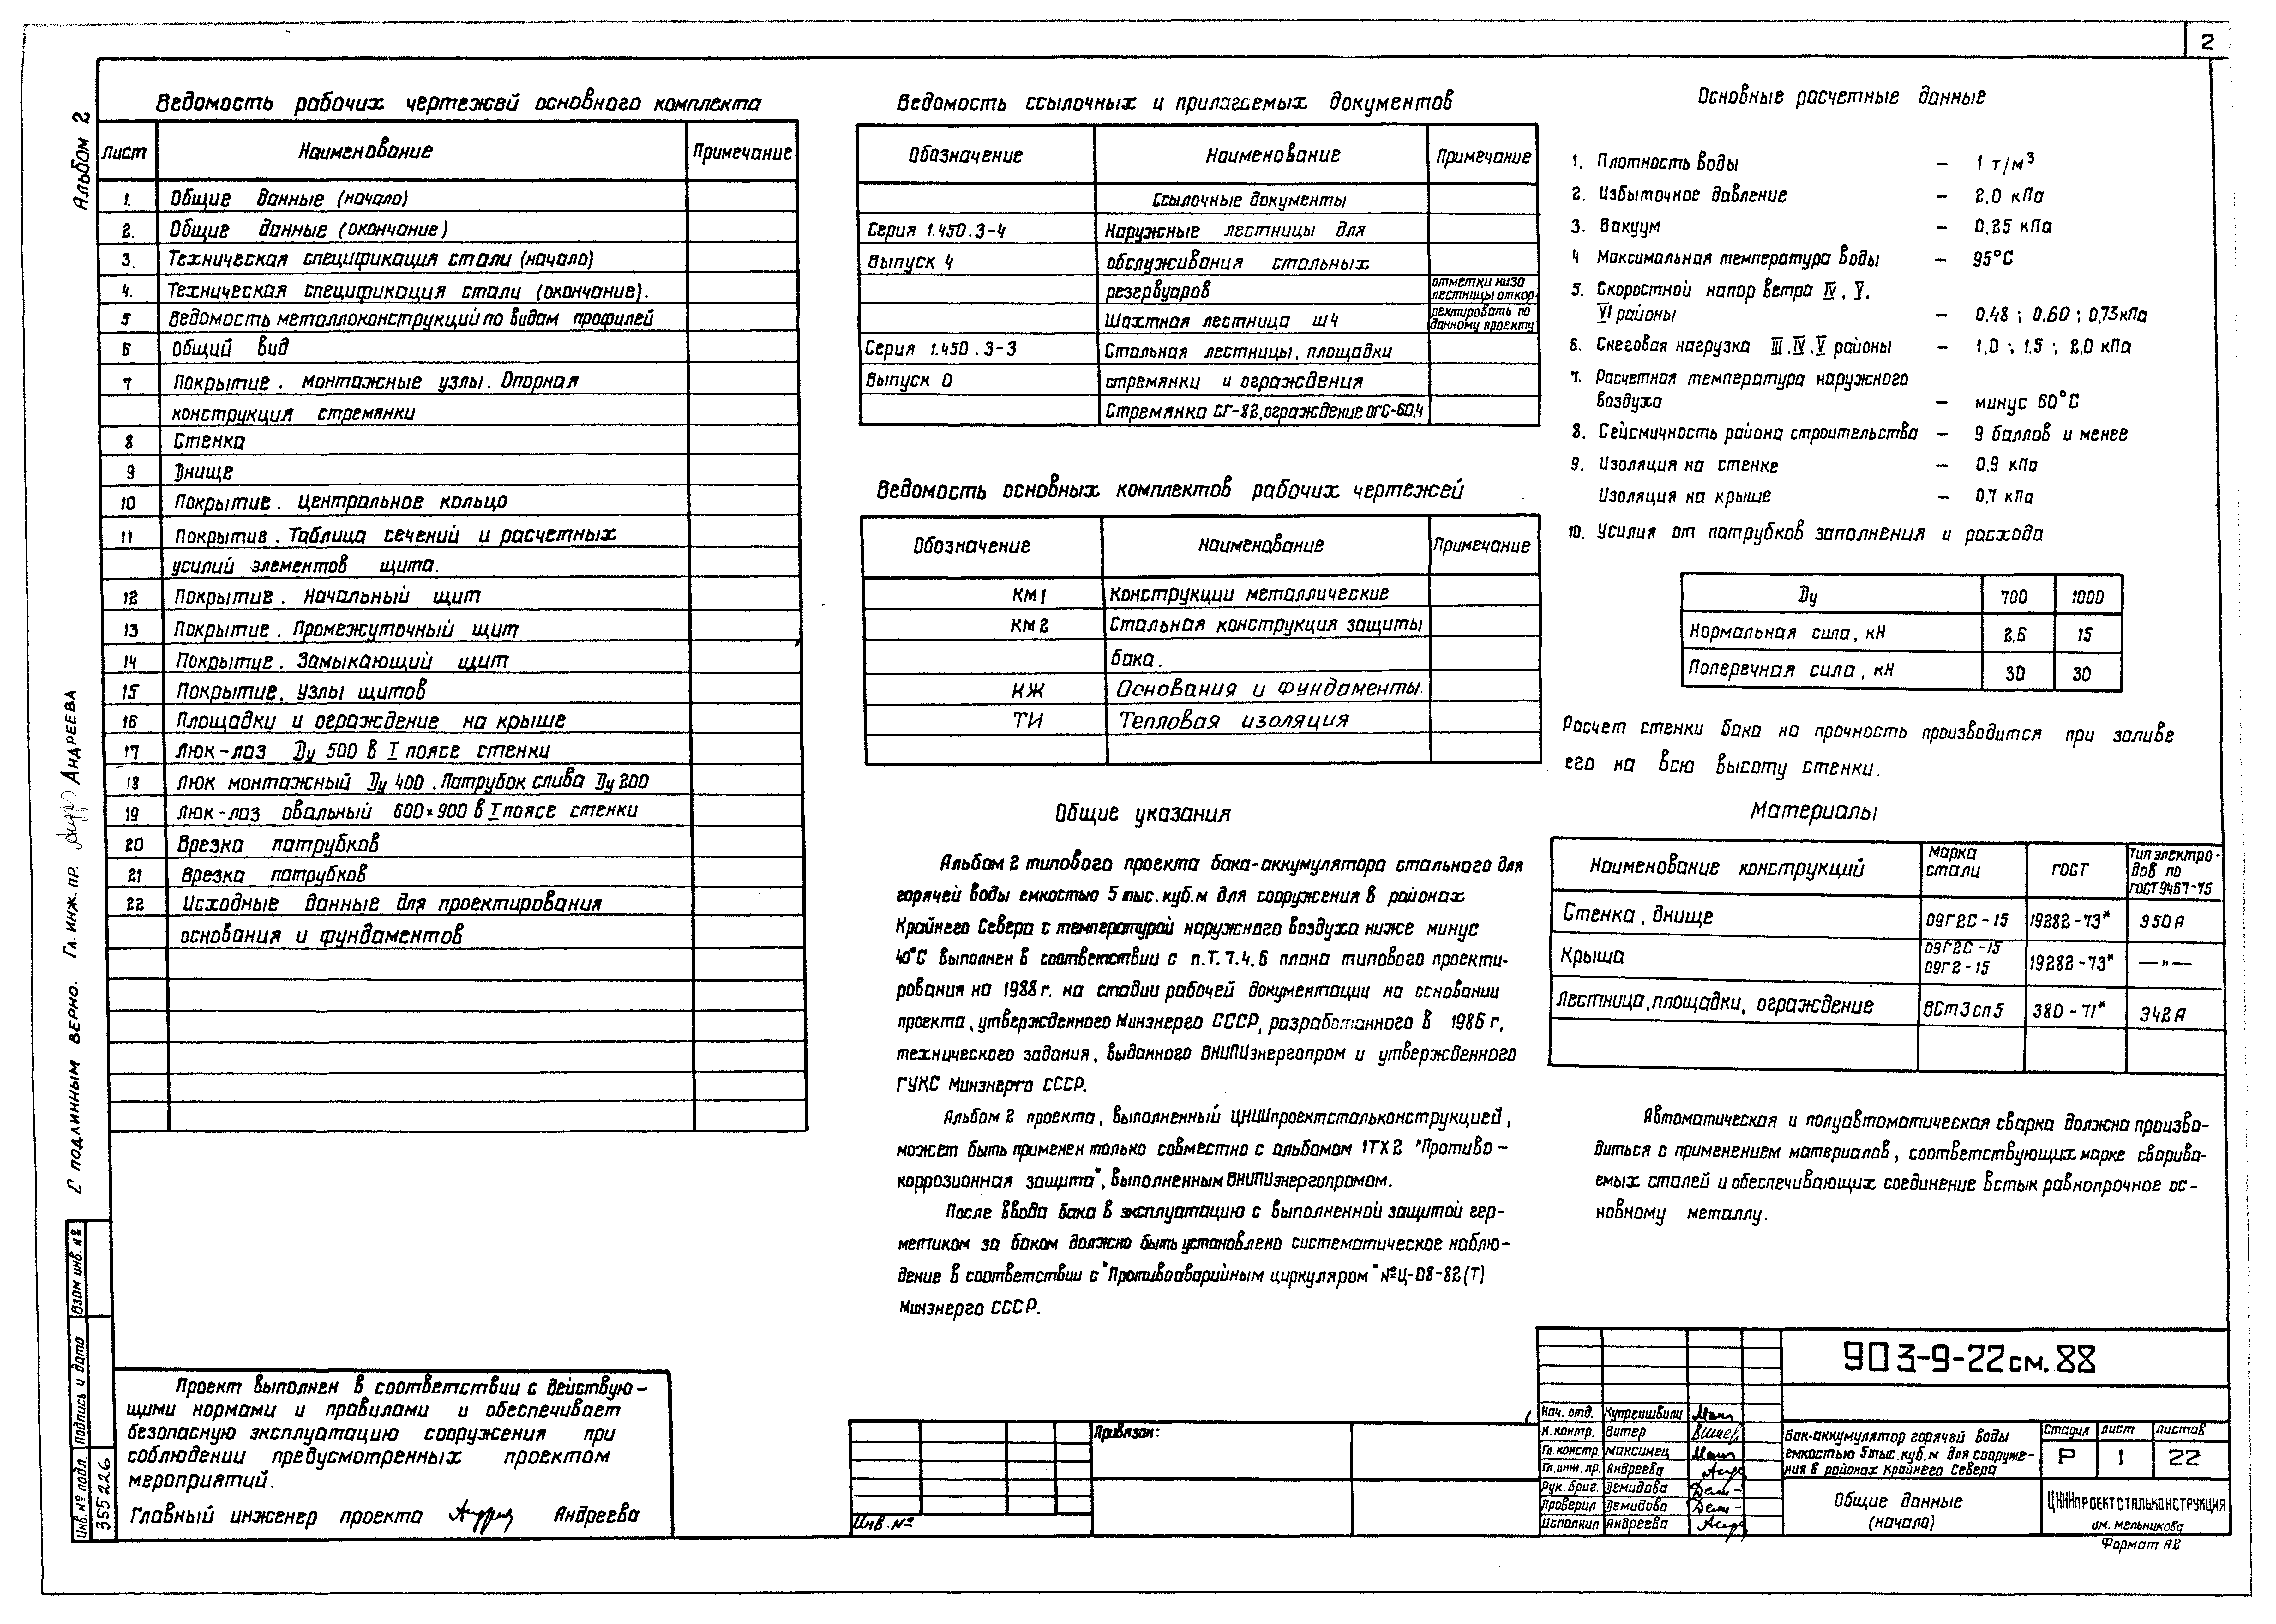 2
Альбом 2
Ведомость рабочих чертежей основного комплекта
Лист Наименование Примечание
1. Общие данные (начало)
2. Общие данные (окончание)
3. Техническая спецификация стали (начало)
4. Техническая спецификация стали (окончание).
5 Ведомость металлоконструкций по видам профилей
6 Общий вид
7 Покрытие. Монтажные узлы. Опорная
конструкция стремянки
8 Стенка
9 Днище
10 Покрытие. Центральное кольцо
11 Покрытие. Таблица сечений и расчетных
усилий элементов щита.
12 Покрытие. Начальный щит
13 Покрытие. Промежуточный щит
14 Покрытие. Замыкающий щит
15 Покрытие. Узлы щитов
16 Площадки и ограждение на крыше
17 Люк-лаз Ду 500 в I поясе стенки
18 Люк монтажный Ду 400. Патрубок слива Ду 200
19 Люк-лаз овальный 600×900 в I поясе стенки
20 Врезка патрубков
21 Врезка патрубков
22 Исходные данные для проектирования
основания и фундаментов
Ведомость ссылочных и прилагаемых документов
Обозначение Наименование Примечание
Ссылочные документы
Серия 1.450.3-4 Наружные лестницы для
Выпуск 4 обслуживания стальных
резервуаров отметки низа
лестницы откор-
Шахтная лестница Ш4 ректировать по
данному проекту
Серия 1.450.3-3 Стальная лестницы, площадки
Выпуск 0 стремянки и ограждения
Стремянка СГ-82, ограждение ОГС-60.4
Ведомость основных комплектов рабочих чертежей
Обозначение Наименование Примечание
КМ1 Конструкции металлические
КМ2 Стальная конструкция защиты
бака.
КЖ Основания и фундаменты.
ТИ Тепловая изоляция
Общие указания
Альбом 2 типового проекта бака-аккумулятора стального для
горячей воды емкостью 5 тыс. куб. м для сооружения в районах
Крайнего Севера с температурой наружного воздуха ниже минус
40°С выполнен в соответствии с п.Т.7.4.6 плана типового проекти-
рования на 1988 г. на стадии рабочей документации на основании
проекта, утвержденного Минэнерго СССР, разработанного в 1986 г,
технического задания, выданного ВНИПИэнергопром и утвержденного
ГУКС Минэнерго СССР.
Альбом 2 проекта, выполненный ЦНИИпроектстальконструкцией,
может быть применен только совместно с альбомом 1ТХ2 "Противо-
коррозионная защита", выполненным ВНИПИэнергопромом.
После ввода бака в эксплуатацию с выполненной защитой гер-
метиком за баком должно быть установлено систематическое наблю-
дение в соответствии с "Противоаварийным циркуляром" №Ц-08-82(Т)
Минэнерго СССР.
Основные расчетные данные
1. Плотность воды – 1 т/м³
2. Избыточное давление – 2,0 кПа
3. Вакуум – 0,25 кПа
4 Максимальная температура воды – 95°С
5. Скоростной напор ветра IV, V,
VI районы – 0,48; 0,60; 0,73 кПа
6. Снеговая нагрузка III, IV, V районы – 1,0; 1,5; 2,0 кПа
7. Расчетная температура наружного
воздуха – минус 60°С
8. Сейсмичность района строительства – 9 баллов и менее
9. Изоляция на стенке – 0,9 кПа
Изоляция на крыше – 0,7 кПа
10. Усилия от патрубков заполнения и расхода
Ду 700 1000
Нормальная сила, кН 2,6 15
Поперечная сила, кН 30 30
Расчет стенки бака на прочность производится при заливе
его на всю высоту стенки.
Материалы
Наименование конструкций Марка
стали ГОСТ Тип электро-
дов по
ГОСТ 9467-75
Стенка, днище 09Г2С-15 19282-73* Э50А
Крыша 09Г2С-15
09Г2-15 19282-73* —"—
Лестница, площадки, ограждение ВСт3сп5 380-71* Э42А
Автоматическая и полуавтоматическая сварка должна произво-
диться с применением материалов, соответствующих марке сварива-
емых сталей и обеспечивающих соединение встык равнопрочное ос-
новному металлу.
С подлинным верно. Гл. инж. пр. Андреева
Взам. инв. №
Подпись и дата
Инв. № подл. 355226
Проект выполнен в соответствии с действую-
щими нормами и правилами и обеспечивает
безопасную эксплуатацию сооружения при
соблюдении предусмотренных проектом
мероприятий.
Главный инженер проекта Андреева
Привязан:
Инв. №
903-9-22см.88
Нач. отд. Купреишвили
Н. контр. Витер
Гл. констр. Максимец
Гл. инж. пр. Андреева
Рук. бриг. Демидова
Проверил Демидова
Исполнил Андреева
Бак-аккумулятор горячей воды
емкостью 5 тыс. куб. м для сооруже-
ния в районах Крайнего Севера
Стадия Лист Листов
Р 1 22
Общие данные
(начало)
ЦНИИпроектстальконструкция
им. Мельникова
Формат А2